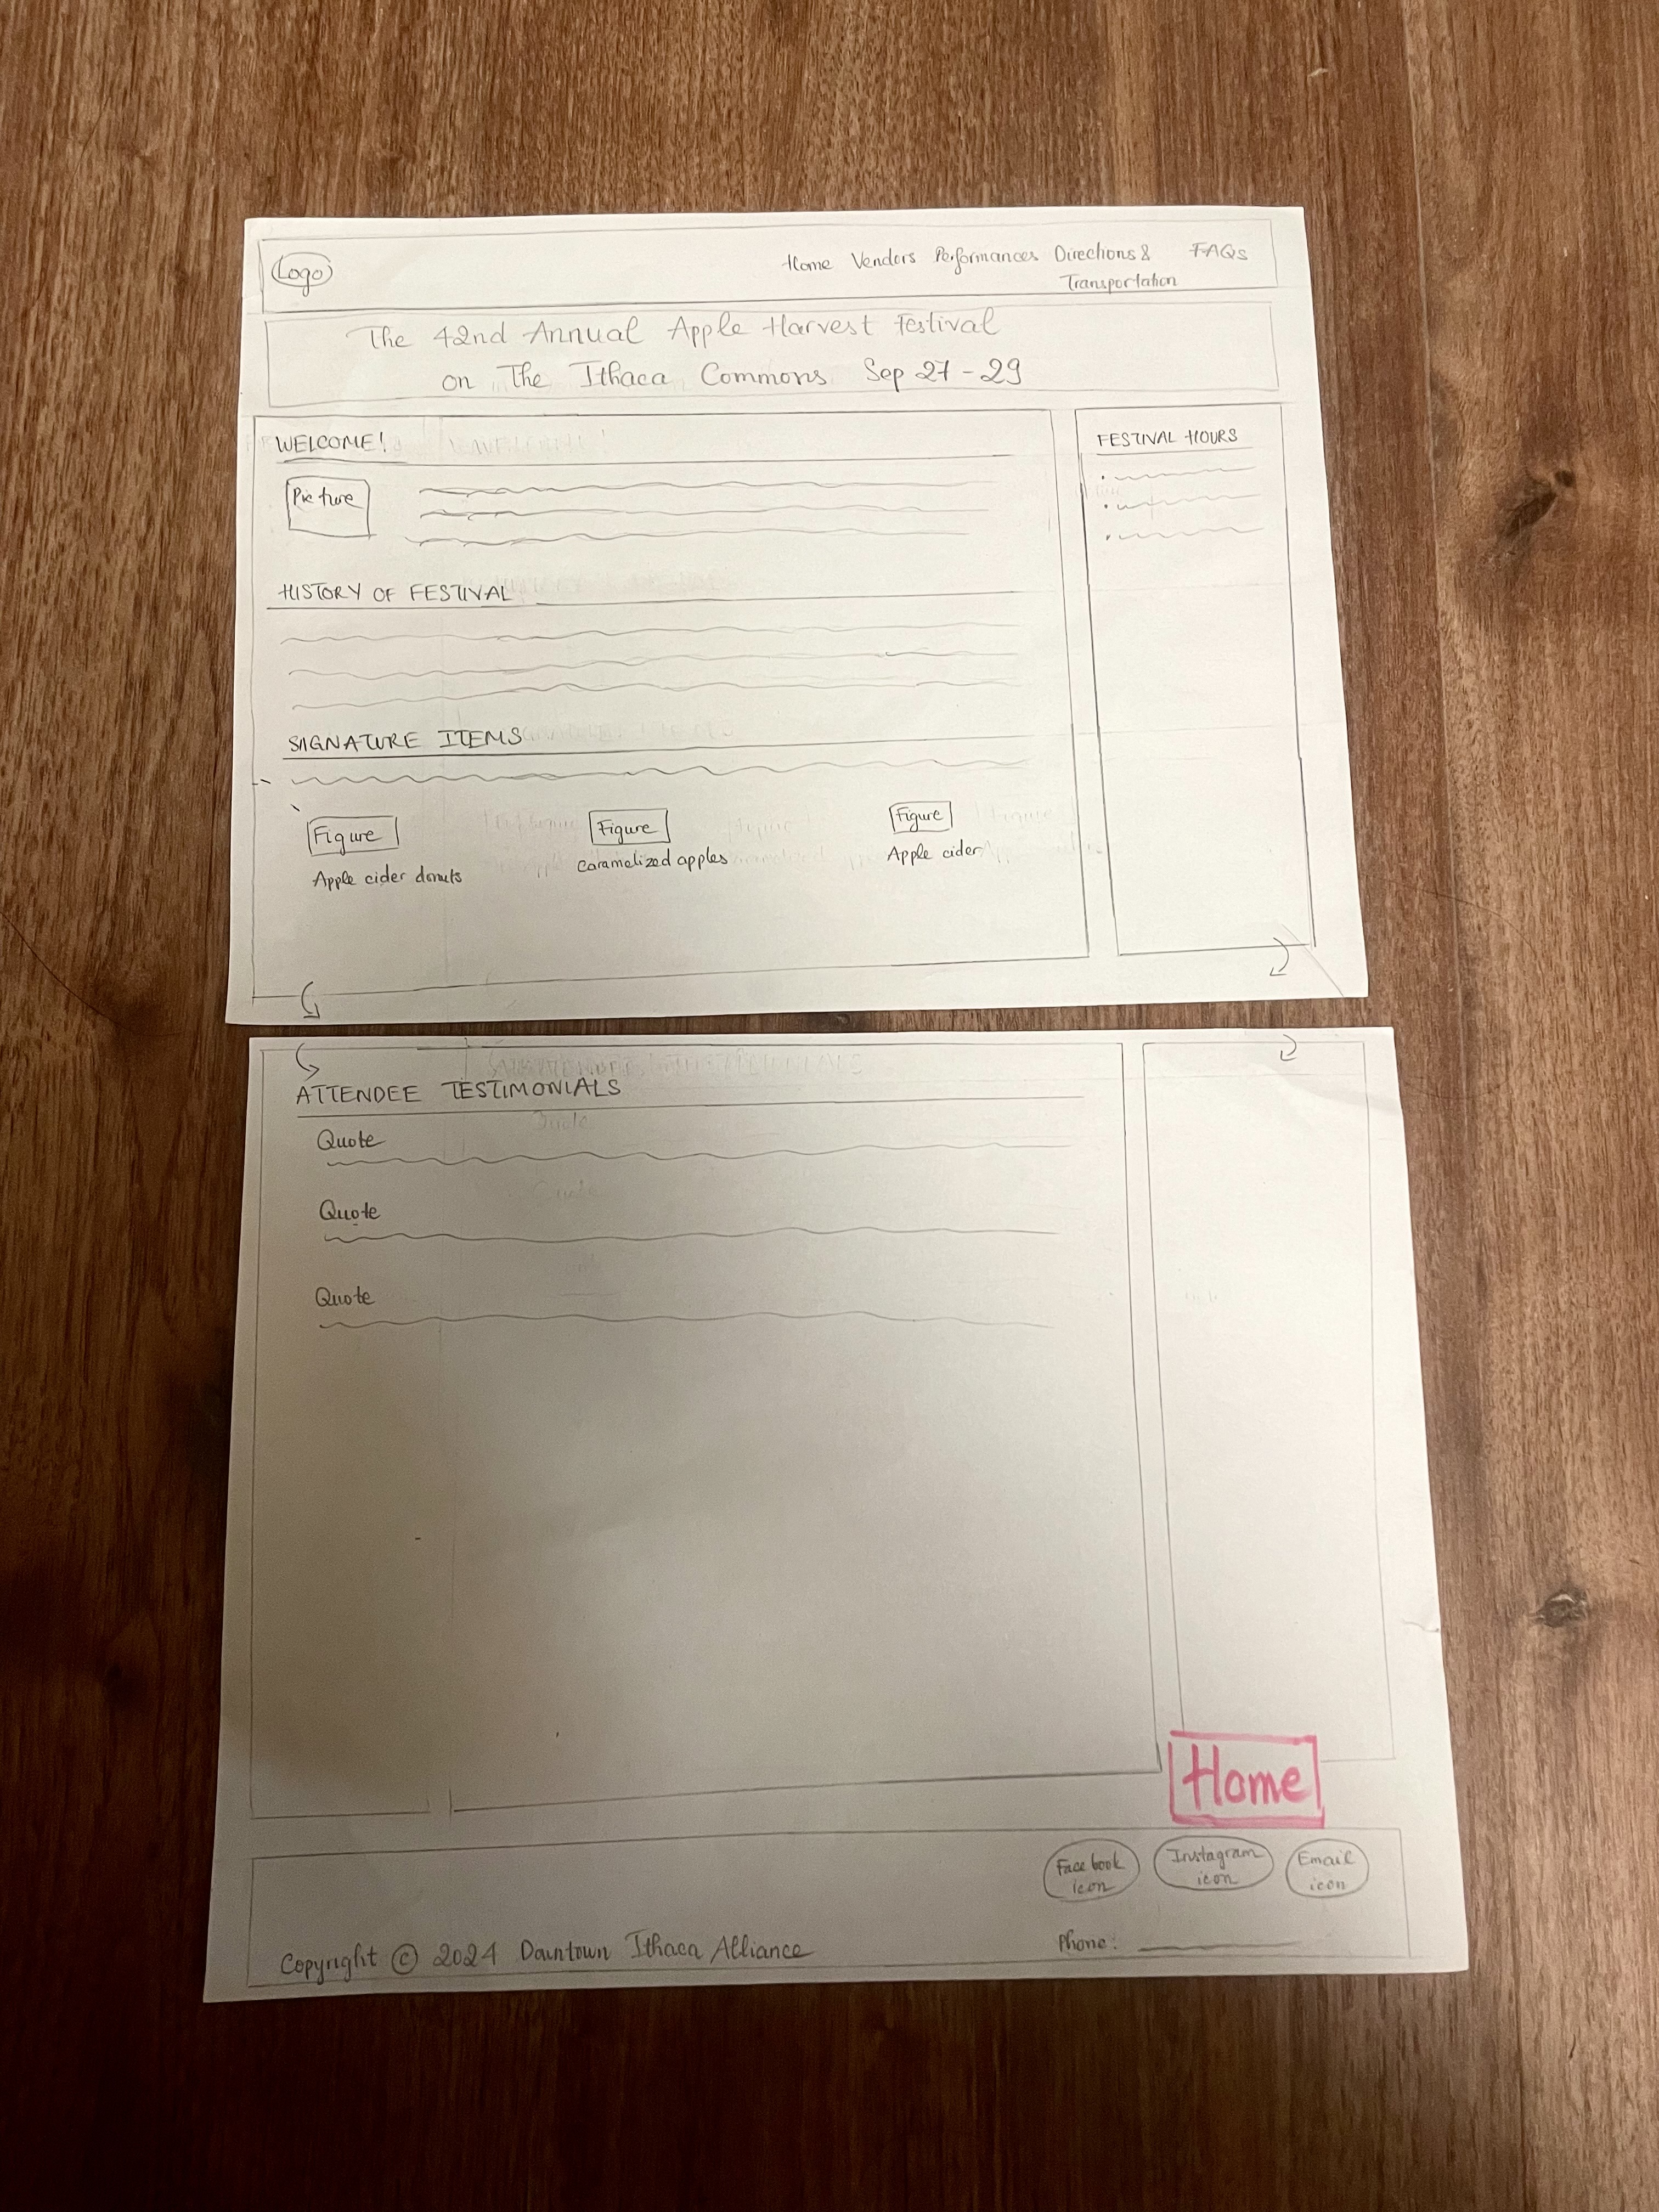 Logo
Home Vendors Performances Directions & FAQs
Transportation
The 42nd Annual Apple Harvest Festival
on The Ithaca Commons Sep 27 - 29
WELCOME!
Picture
FESTIVAL HOURS
HISTORY OF FESTIVAL
SIGNATURE ITEMS
Figure
Apple cider donuts
Figure
caramelized apples
Figure
Apple cider
ATTENDEE TESTIMONIALS
Quote
Quote
Quote
Home
Facebook
icon
Instagram
icon
Email
icon
Phone:
Copyright © 2024 Downtown Ithaca Alliance